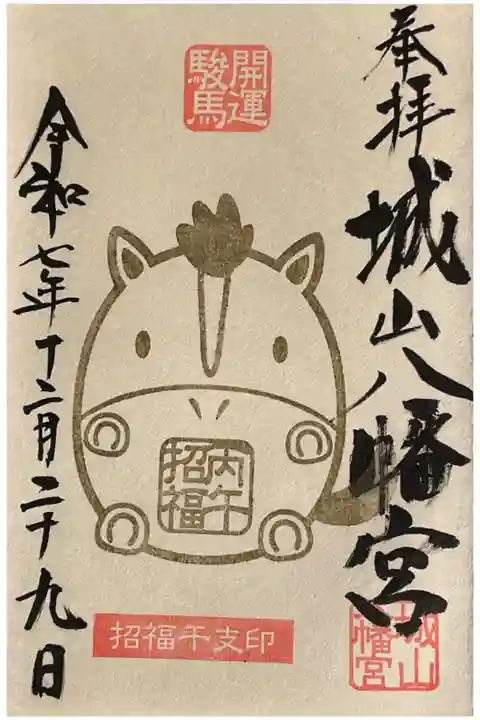 奉拝
城山八幡宮
開運
駿馬
丙午
招福
招福干支印
令和七年十二月二十九日
城山
八幡宮